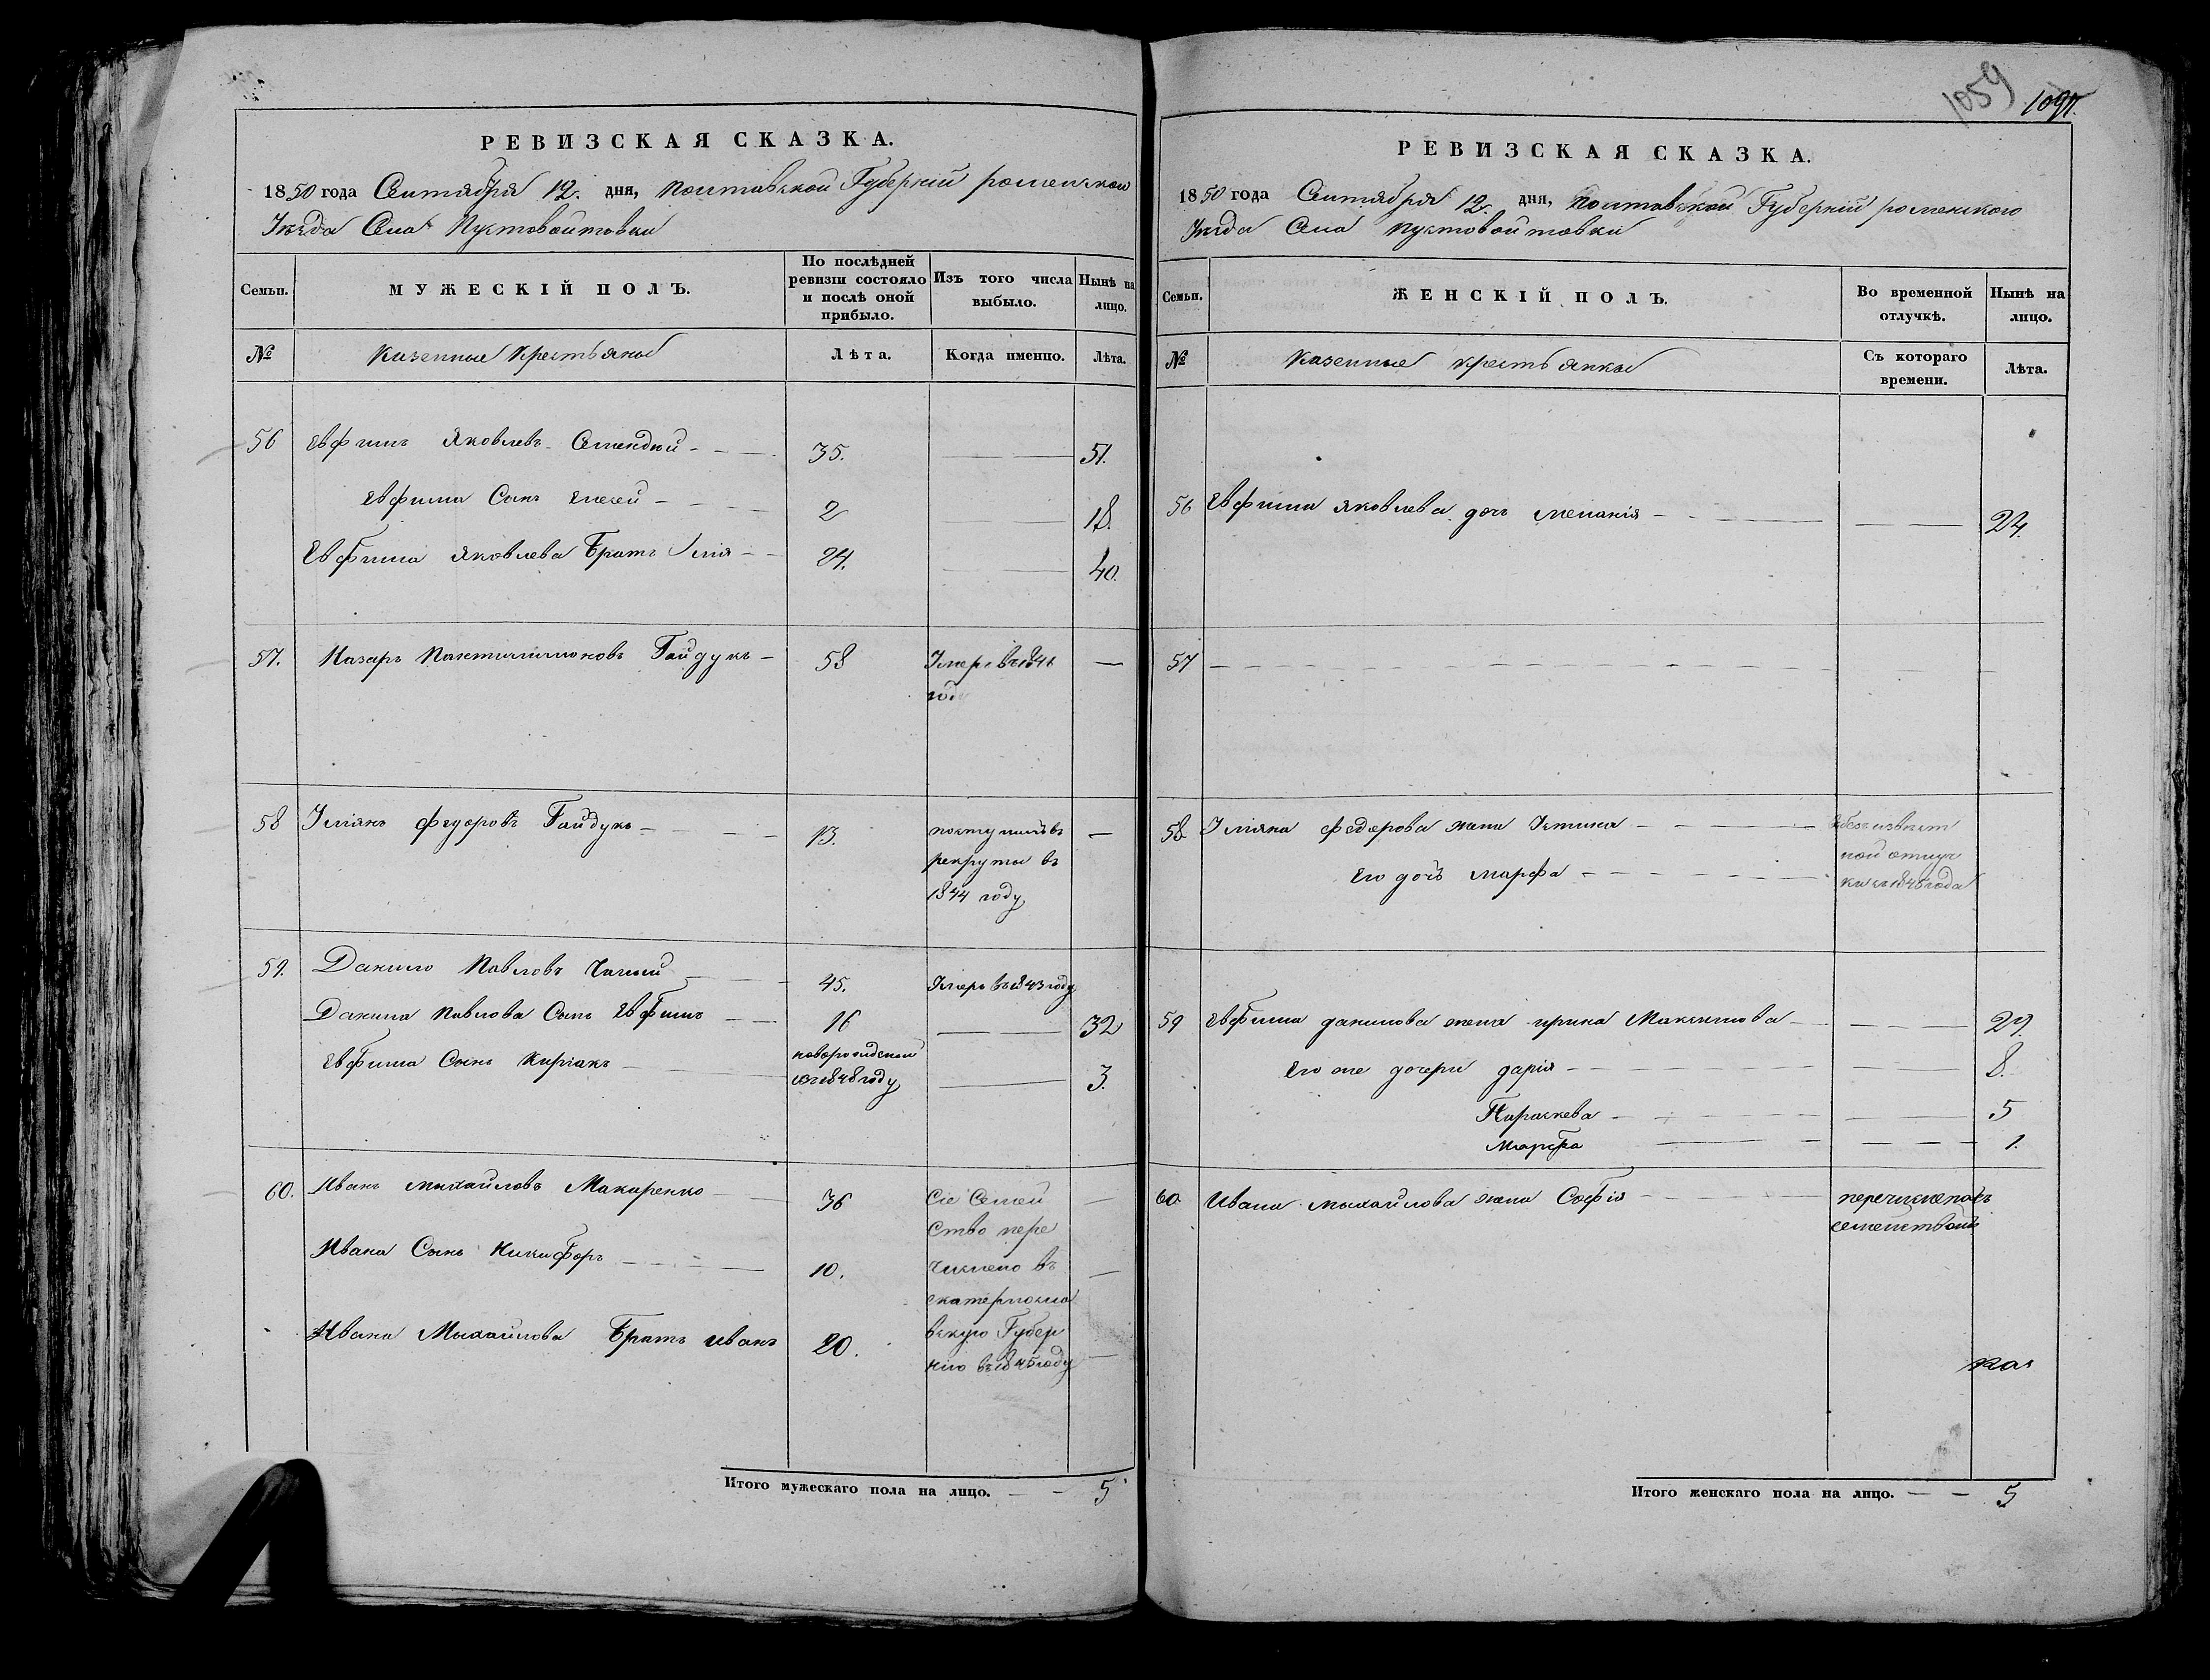 РЕВИЗСКАЯ СКАЗКА.
1850 года Сентября 12. дня, Полтавской Губерніи роменского
Уезда Села Пустовойтовки
Семьи.
МУЖЕСКІЙ ПОЛЪ.
По послѣдней ревизіи состояло и послѣ оной прибыло.
Изъ того числа выбыло.
Нынѣ на лицо.
№
Казенные Крестьяны
Лѣта.
Когда именно.
Лѣта.
56 Евфимъ Яковлевъ 35. 51.
Евфима Сынъ 2 18.
Евфима Яковлева Братъ Илія 24. 40.
57. Назаръ Гайдукъ 58 Умеръ в 1841
году
58 Уліянъ Федоровъ Гайдукъ 13. поступилъ в
рекруты въ
1844 году
59. Данило Павловъ 45. Умеръ въ 1843 году
Данила Павлова Сынъ Евфимъ 16 32
Евфима Сынъ Киріакъ новорожденной
въ 1848 году 3.
60. Иванъ Михайловъ Макаренко 36 Сіе Семей
Ивана Сынъ Никифоръ 10. Ство пере
числено въ
екатеринославскую Губер
Ивана Михайлова Братъ Иванъ 20. нію въ 1845 году
Итого мужескаго пола на лицо. 5
1059
РЕВИЗСКАЯ СКАЗКА.
1850 года Сентября 12. дня, Полтавской Губерніи роменского
Уезда Села Пустовойтовки
Семьи.
ЖЕНСКІЙ ПОЛЪ.
Во временной отлучкѣ.
Нынѣ на лицо.
№
Казенные крестьянки
Съ котораго времени.
Лѣта.
56 Евфима Яковлева дочь меланія 24.
57
58 Уліяна Федорова жена Устина в безъизвѣст
ной отлуч
его дочь марфа ки съ 1845 года
59 Евфима данилова жена ирина 29.
Его же дочери дарія 8.
Параскева 5
Марфа 1.
60 Ивана михайлова жена Софія перечислена съ
семействомъ
Итого женскаго пола на лицо. 5